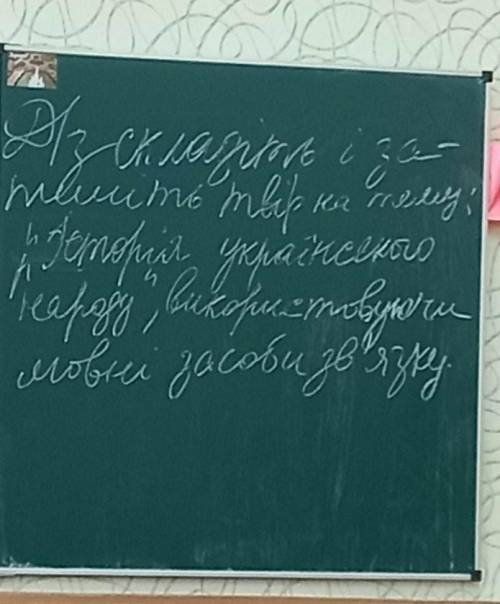 Д/з складіть і за-
пишіть твір на тему:
"Історія українського
народу", використовуючи
мовні засоби зв'язку.